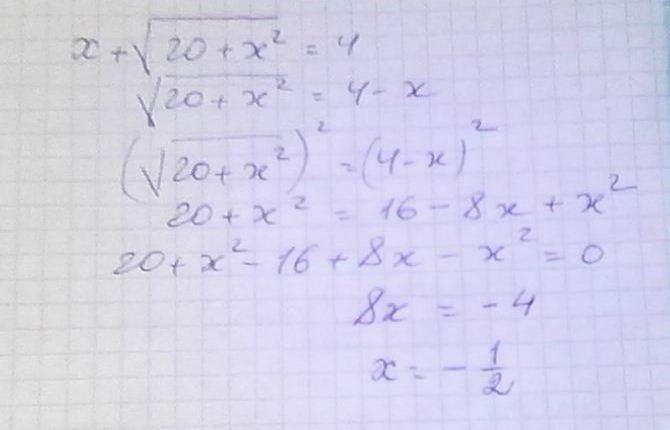 x + √(20 + x²) = 4
√(20 + x²) = 4 - x
(√(20 + x²))² = (4 - x)²
20 + x² = 16 - 8x + x²
20 + x² - 16 + 8x - x² = 0
8x = -4
x = -1/2